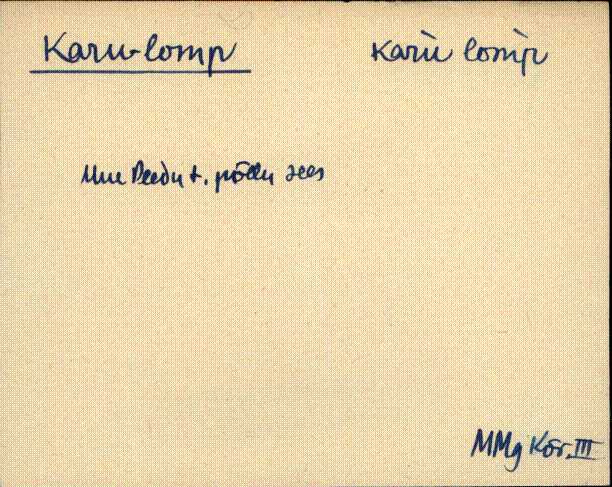 Karu-lomp
Karù lomp̀
Uue Peedu t. põllu sees
MMg Kõr. III